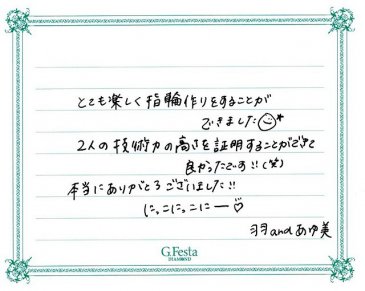 とても楽しく指輪作りをすることが
できました☺*
2人の技術力の高さを証明することができて
良かったです!!(笑)
本当にありがとうございました!!
にっこにっこにー♡
羽andあゆ美
G.Festa
DIAMOND